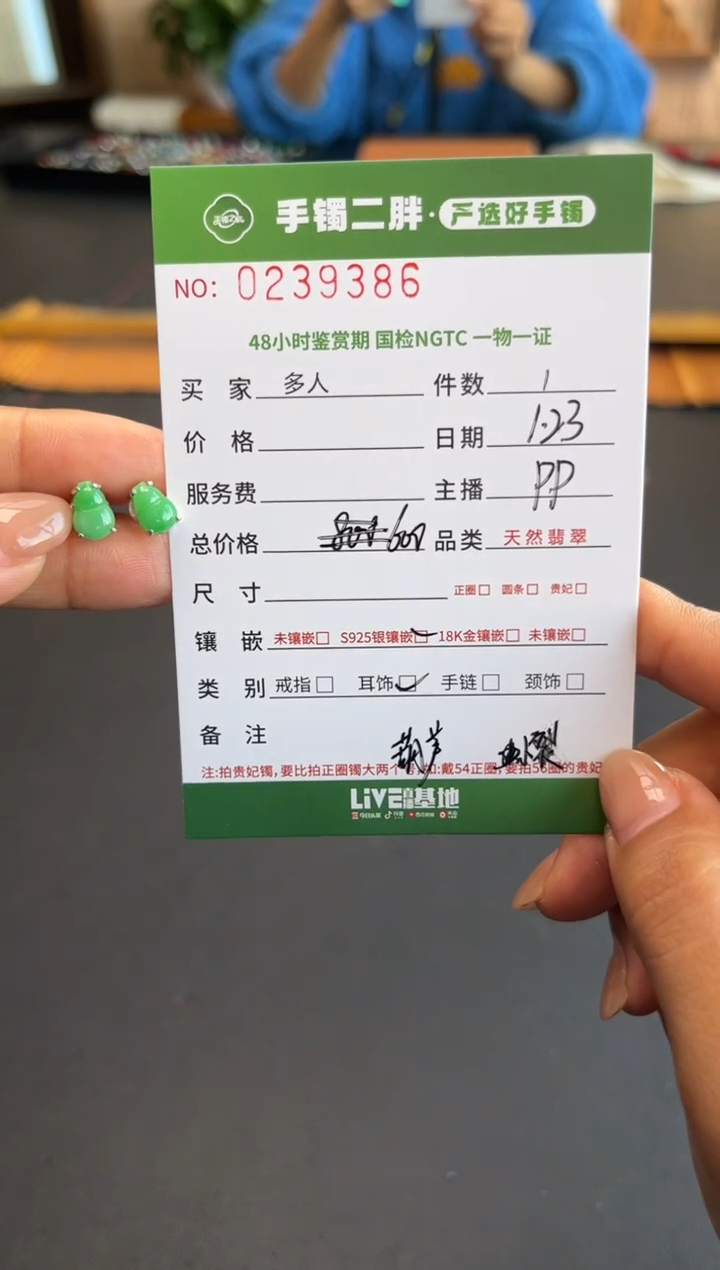 手镯二胖·严选好手镯
NO: 0239386
48小时鉴赏期 国检NGTC 一物一证
买 家 多人 件数 1
价 格 日期 1.23
服务费 主播 PP
总价格 600 品类 天然翡翠
尺 寸 正圈□ 圆条□ 贵妃□
镶 嵌 未镶嵌□ S925银镶嵌□ 18K金镶嵌□ 未镶嵌□
类 别 戒指□ 耳饰□ 手链□ 颈饰□
备 注
葫芦 裂
注:拍贵妃镯,要比拍正圈镯大两个号,如:戴54正圈,要拍56圈的贵妃
LiVE直播基地
今日头条 抖音 西瓜视频 火山